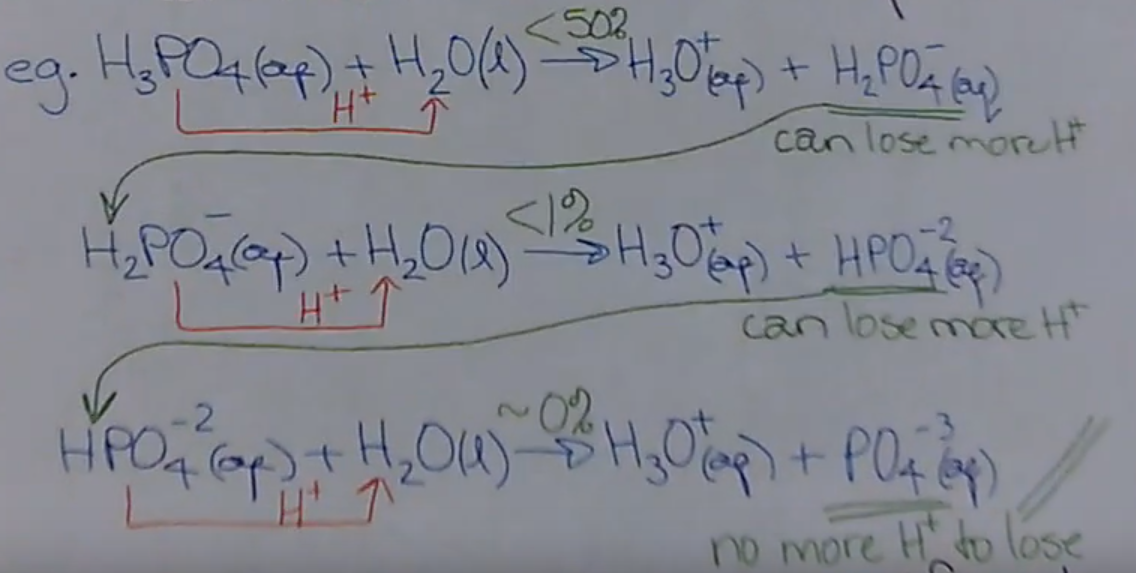 eg. H₃PO₄(aq) + H₂O(l) <50% → H₃O⁺(aq) + H₂PO₄⁻(aq)
H⁺
can lose more H⁺
H₂PO₄⁻(aq) + H₂O(l) <1% → H₃O⁺(aq) + HPO₄⁻²(aq)
H⁺
can lose more H⁺
HPO₄⁻²(aq) + H₂O(l) ~0% → H₃O⁺(aq) + PO₄⁻³(aq)
H⁺
no more H⁺ to lose